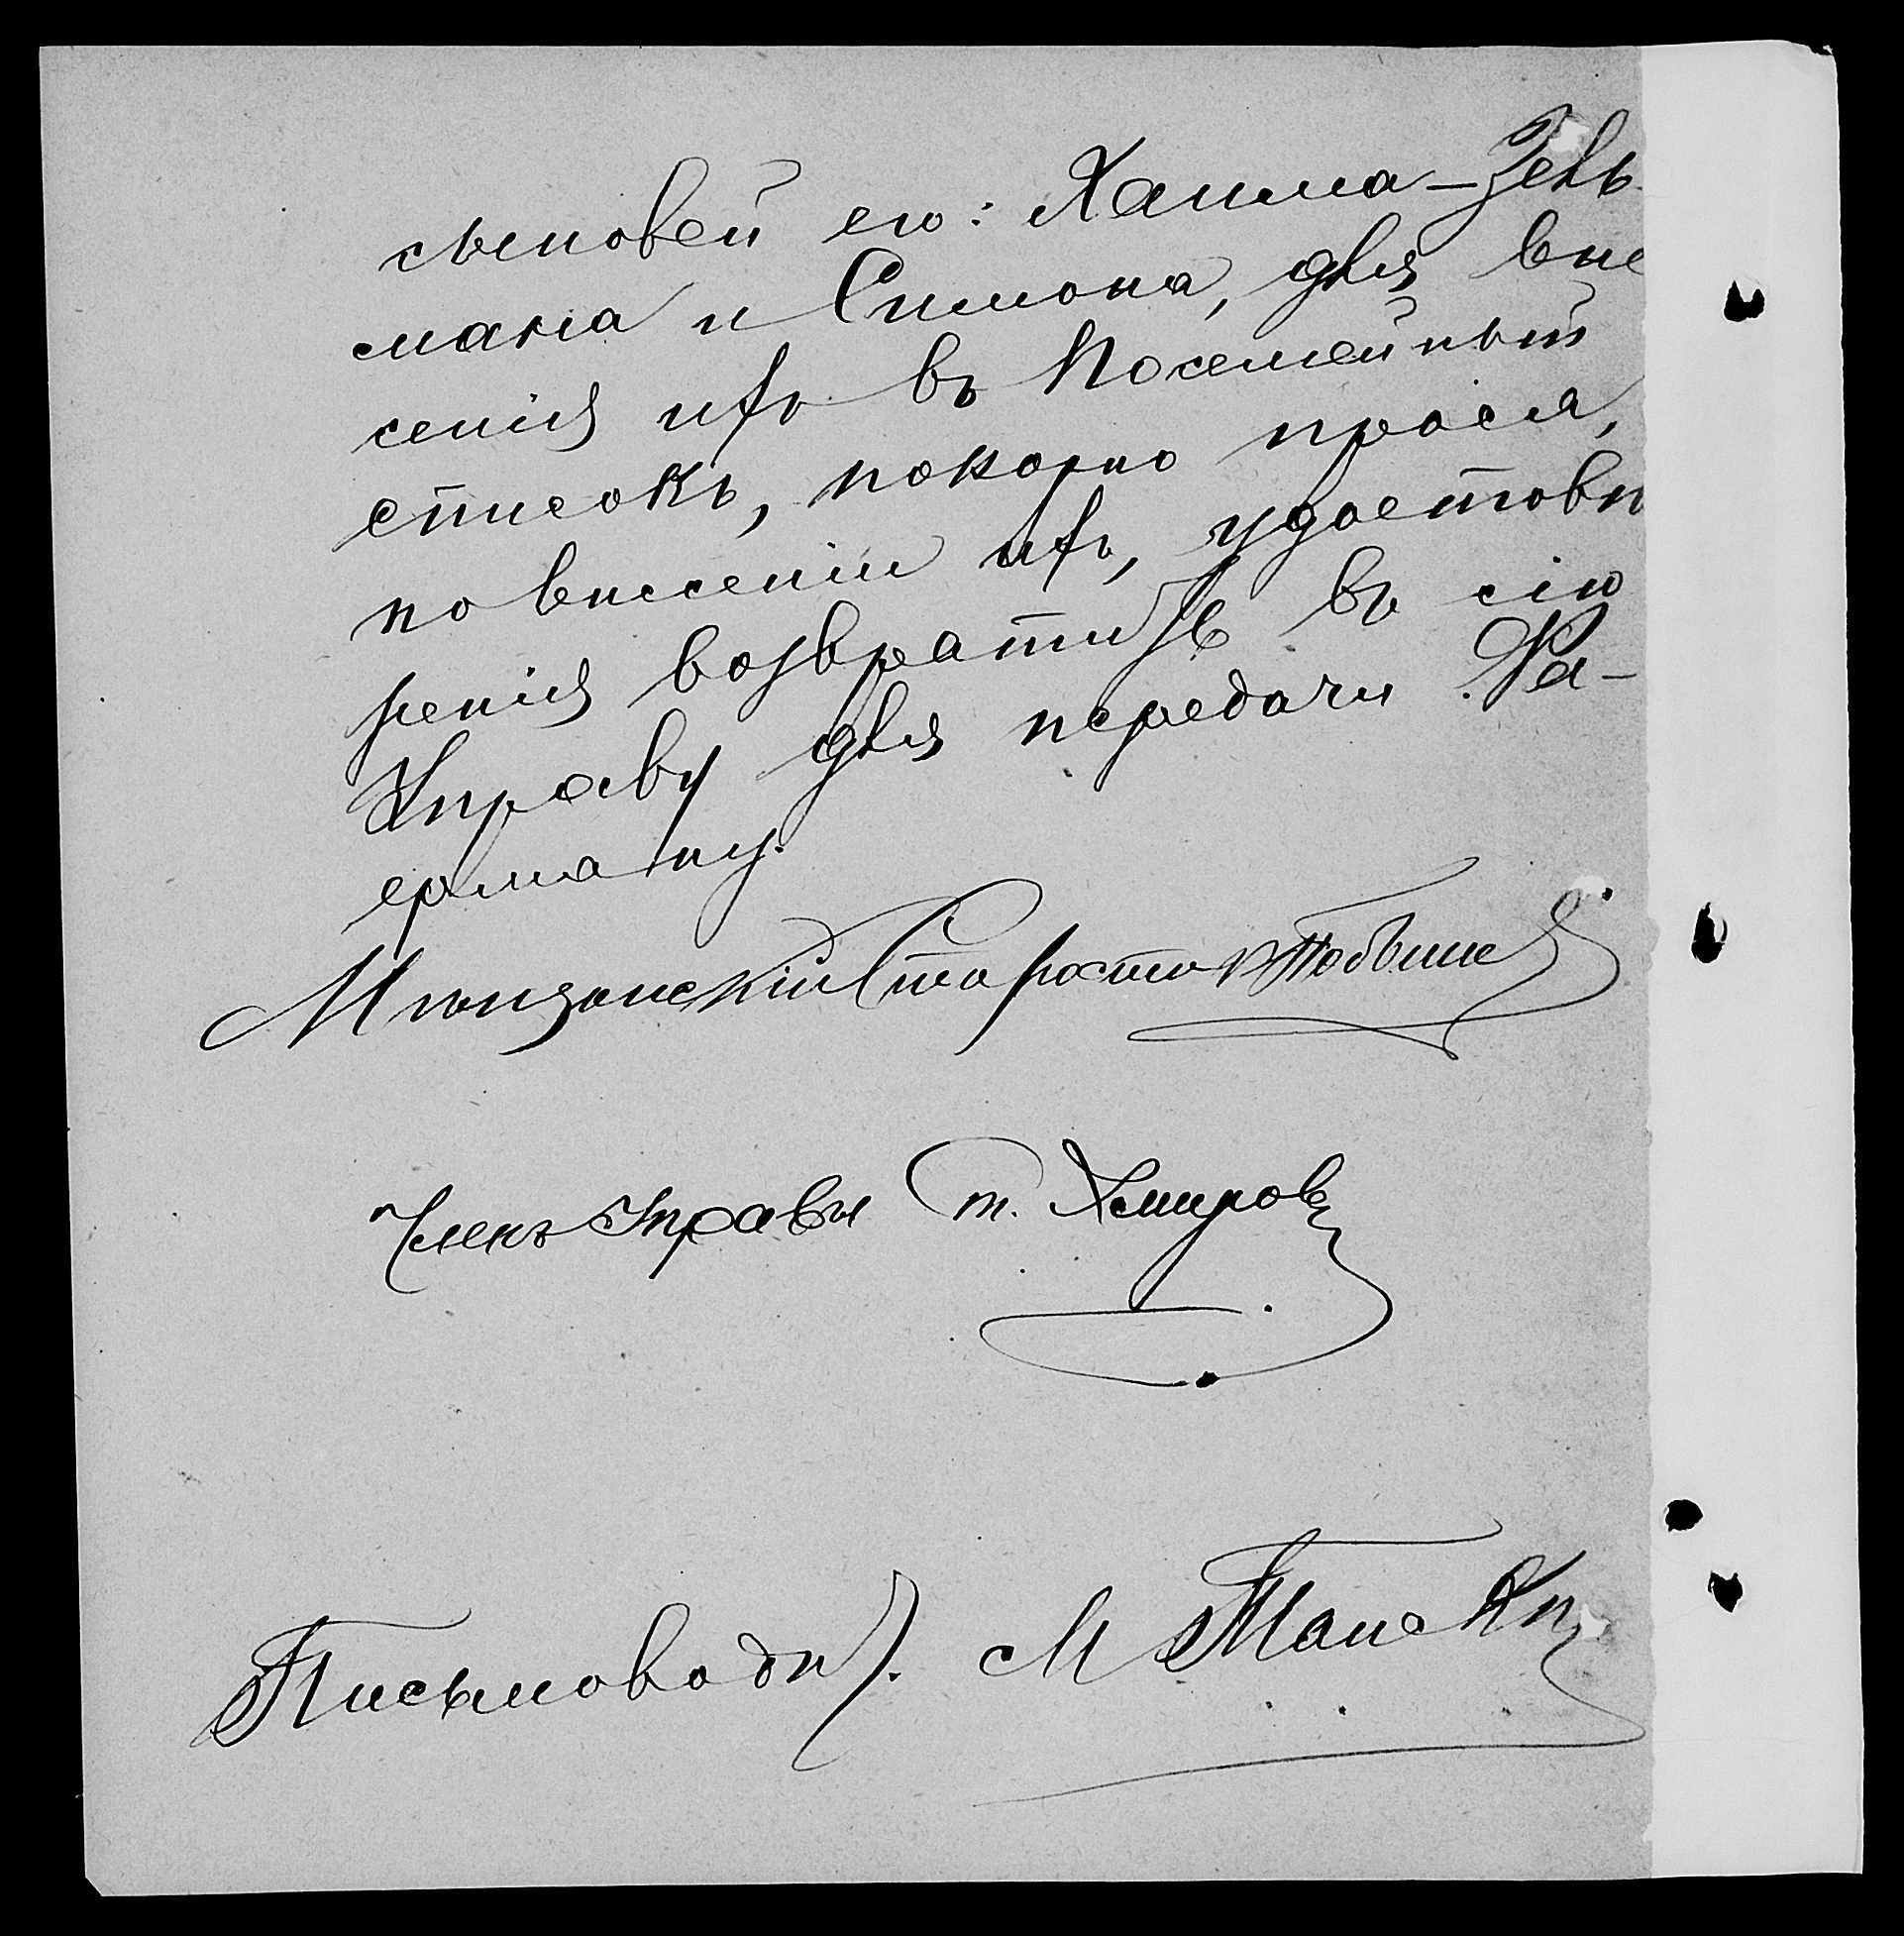 сыновей его: Хаима-Зель-
мана и Симона, для вне
сенія ихъ въ Посемейный
списокъ, покорно прося,
по внесеніи ихъ, удостовѣ
ренія возвратить въ сію
Управу для передачи Фа-
ерману.
Мѣщанскій Староста
Членъ Управы
Письмовод.